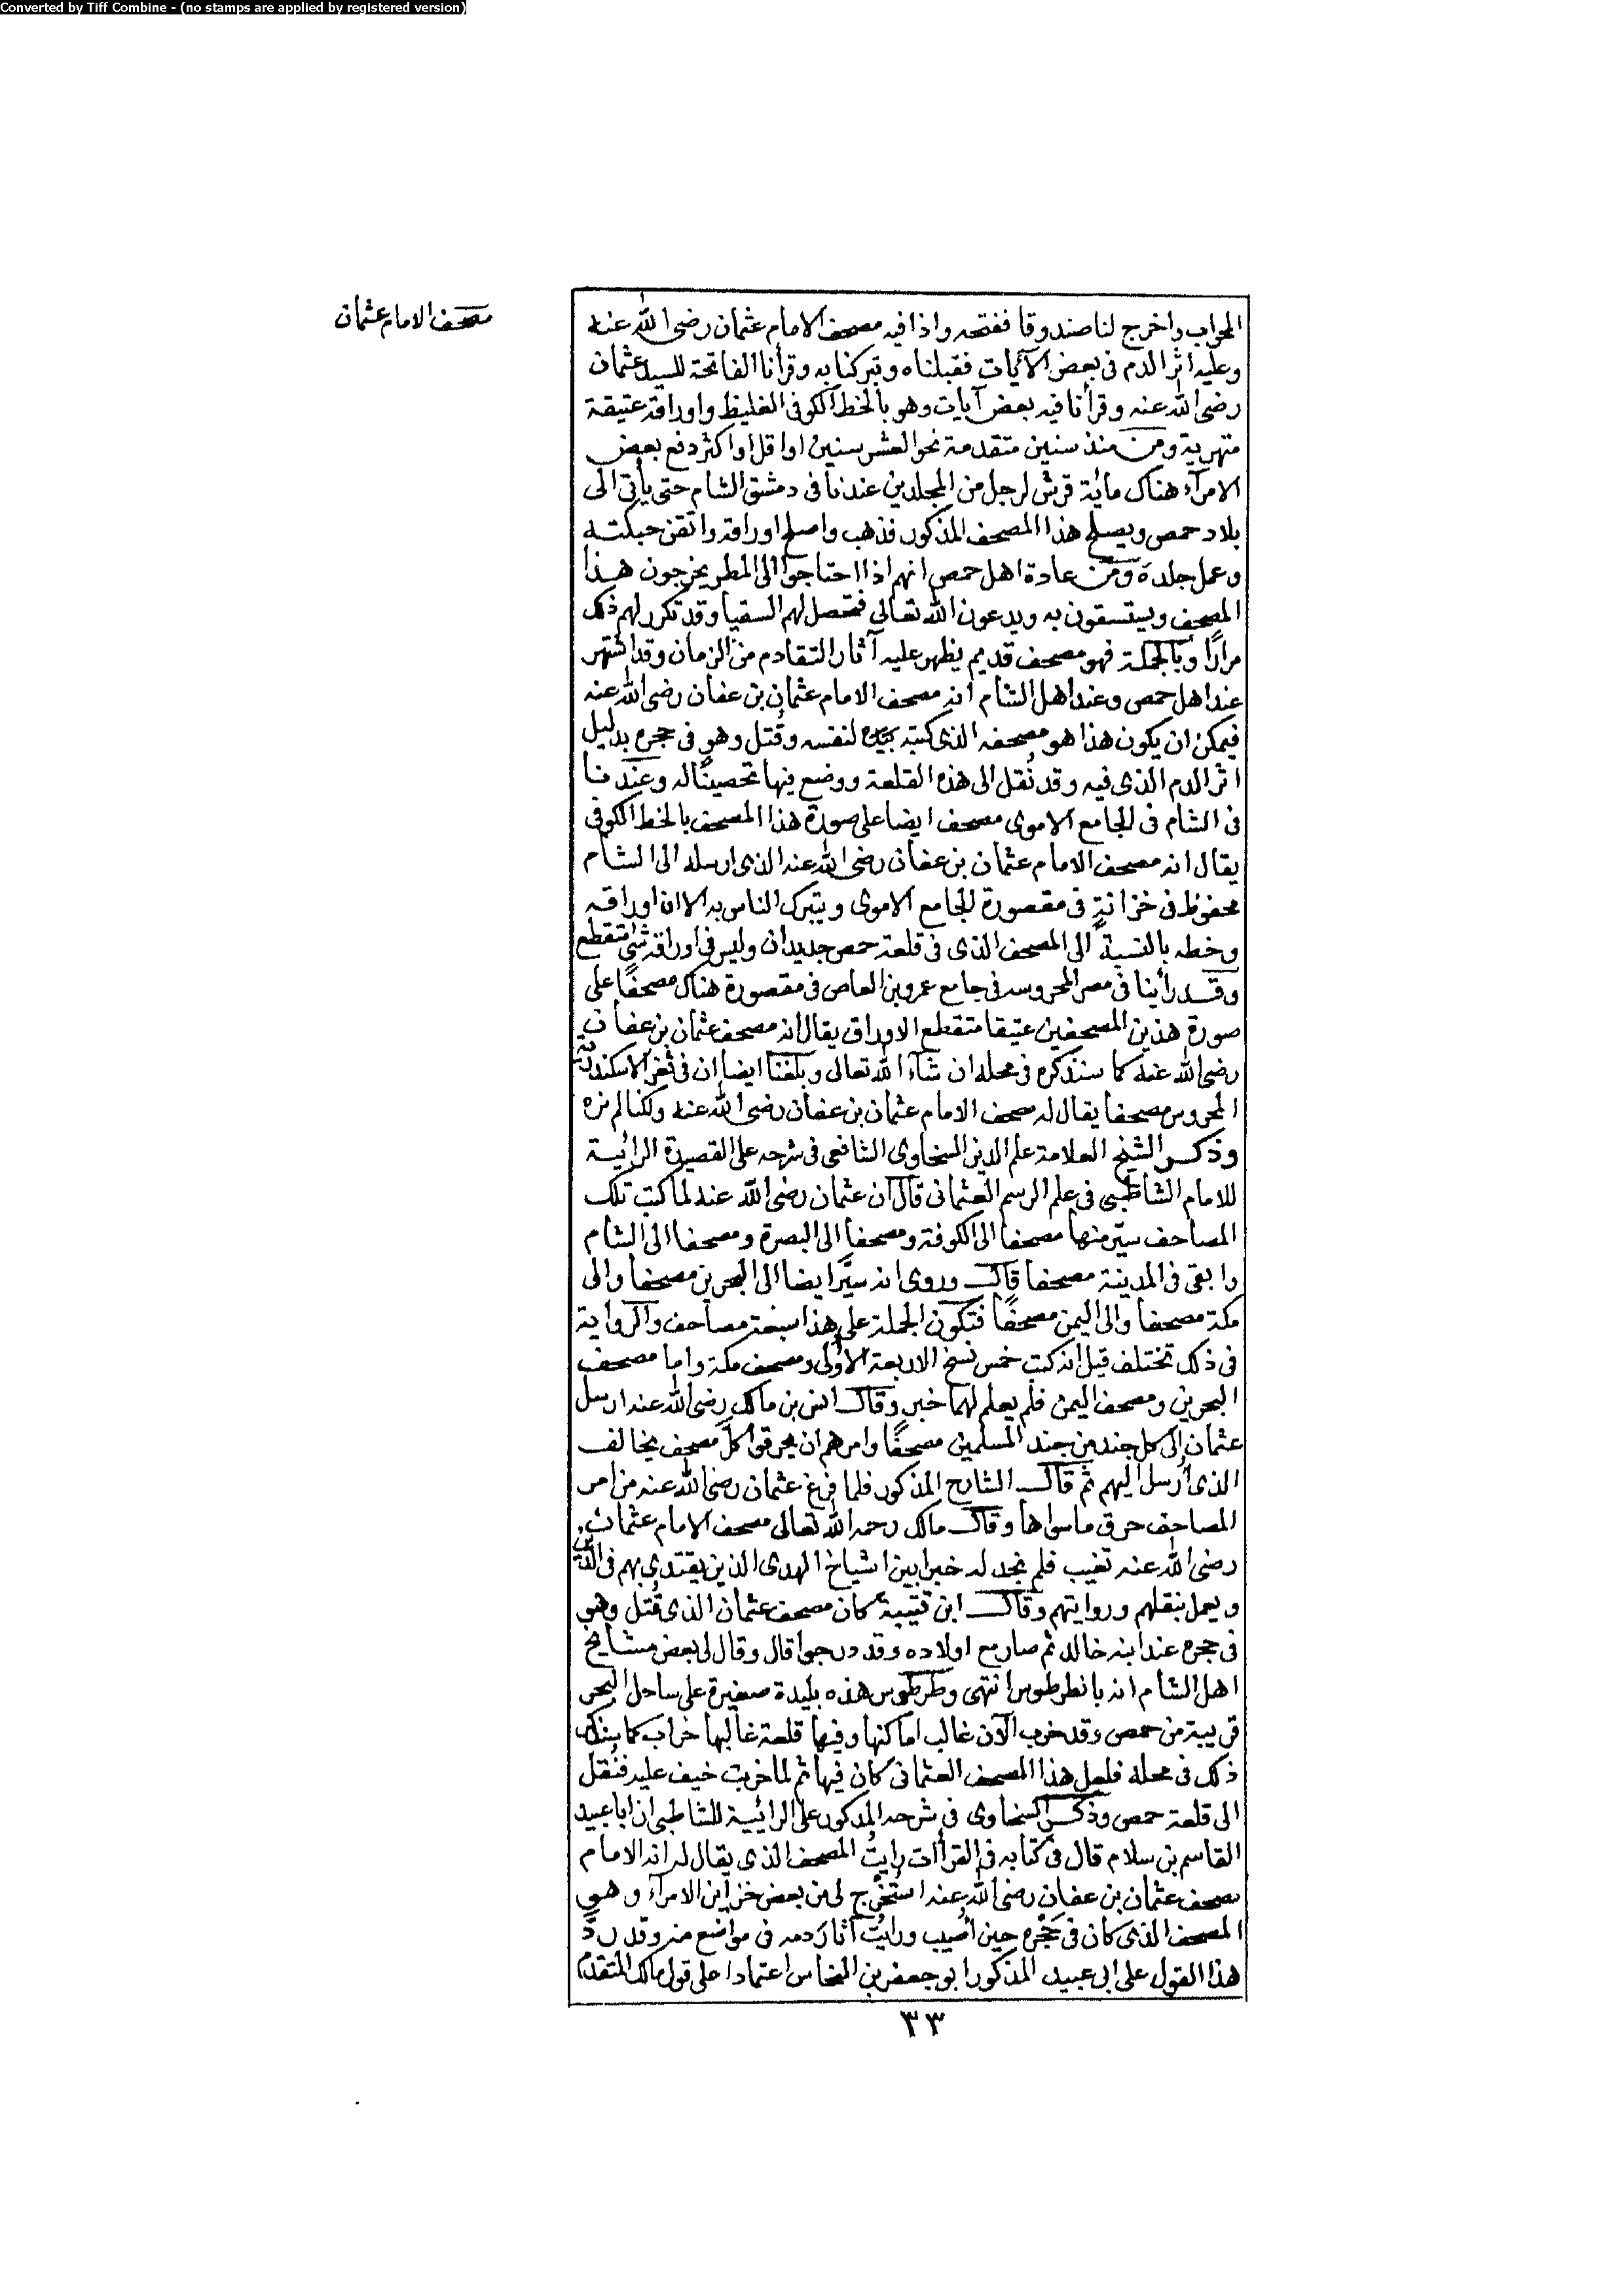 Converted by Tiff Combine - (no stamps are applied by registered version)
مصحف الامام عثمان
المحراب واخرج لنا صندوقا ففتحه واذا فيه مصحف الامام عثمان رضى الله عنه
وعليه اثر الدم فى بعض الآيات فقبلناه وتبركنا به وقرأنا الفاتحة للسيد عثمان
رضى الله عنه وقرأنا فيه بعض آيات وهو بالخط الكوفى الغليظ واوراقه عتيقة
متهرية ومن منذ سنين متقدمة نحو العشر سنين او اقل او اكثر دفع بعض
الامرآء هناك مائة قرش لرجل من المجلدين عندنا فى دمشق الشام حتى يأتى الى
بلاد حمص ويصلح هذا المصحف المذكور فذهب واصلح اوراقه واتقن حبكته
وعمل جلده ومن عادة اهل حمص انهم اذا احتاجوا الى المطر يخرجون هذا
المصحف ويستسقون به ويدعون الله تعالى فتحصل لهم السقيا وقد تكرر لهم ذلك
مرارًا وبالجملة فهو مصحف قديم يظهر عليه آثار التقادم من الزمان وقد اشتهر
عند اهل حمص وعند اهل الشام انه مصحف الامام عثمان بن عفان رضى الله عنه
فيمكن ان يكون هذا هو مصحفه الذى كتبه بيده لنفسه وقُتل وهو فى حجره بدليل
اثر الدم الذى فيه وقد نُقل الى هذه القلعة ووضع فيها تحصينًا له وعندنا
فى الشام فى الجامع الاموى مصحف ايضا على صورة هذا المصحف بالخط الكوفى
يقال انه مصحف الامام عثمان بن عفان رضى الله عنه الذى ارسله الى الشام
محفوظ فى خزانةٍ فى مقصورة الجامع الاموى ويتبرك الناس به الا ان اوراقه
وخطه بالنسبة الى المصحف الذى فى قلعة حمص جديدان وليس فى اوراقه شئ متقطع
وقد رأينا فى مصر المحروسه فى جامع عمرو بن العاص فى مقصورة هناك مصحفًا على
صورة هذين المصحفين عتيقا متقطع الاوراق يقال انه مصحف عثمان بن عفان
رضى الله عنه كما سنذكره فى محله ان شآء الله تعالى وبلغنا ايضا ان فى ثغر الاسكندرية
المحروس مصحفا يقال له مصحف الامام عثمان بن عفان رضى الله عنه ولكنا لم نره
وذكر الشيخ العلامة علم الدين السخاوى الشافعى فى شرحه على القصيدة الرائية
للامام الشاطبى فى علم الرسم العثمانى قال ان عثمان رضى الله عنه لما كتب تلك
المصاحف سيّر منها مصحفا الى الكوفة ومصحفا الى البصرة ومصحفا الى الشام
وابقى فى المدينة مصحفا قال وروى انه سيَّر ايضا الى البحرين مصحفا والى
مكة مصحفا والى اليمن مصحفًا فتكون الجملة على هذا سبعة مصاحف والرواية
فى ذلك تختلف قيل انه كتب خمس نسخ الاربعة الأولى ومصحف مكة واما مصحف
البحرين ومصحف اليمن فلم يعلم لهما خبر وقال انس بن مالك رضى الله عنه ارسل
عثمان الى كل جند من جند المسلمين مصحفًا وامرهم ان يحرقوا كلّ مصحف يخالف
الذى أرسل اليهم ثم قال الشارح المذكور فلما فرغ عثمان رضى الله عنه من امر
المصاحف حرق ما سواها وقال مالك رحمه الله تعالى مصحف الامام عثمان
رضى الله عنه تغيب فلم نجد له خبرا بين اشياخ الهدى الذين يقتدى بهم فى الدين
ويعمل بنقلهم وروايتهم وقال ابن قتيبة كان مصحف عثمان الذى قُتل وهو
فى حجره عند ابنه خالد ثم صار مع اولاده وقد درجوا قال وقال لى بعض مشايخ
اهل الشام انه بانطرطوس انتهى وطرطوس هذه بليدة صغيرة على ساحل البحر
قريبة من حمص وقد خرب الآن غالب اماكنها وفيها قلعة غالبها خراب كما سنذكر
ذلك فى محله فلعل هذا المصحف العثمانى كان فيها ثم لما خربت خيف عليه فنُقل
الى قلعة حمص وذكر السخاوى فى شرحه المذكور على الرائيية للشاطبى ان ابا عبيد
القاسم بن سلام قال فى كتابه فى القرأات رايتُ المصحف الذى يقال له انه الامام
مصحف عثمان بن عفان رضى الله عنه استُخرج لى من بعض خزاين الامرآء وهو
المصحف الذى كان فى حَجْره حين أُصيب ورايتُ آثار دمه فى مواضع منه وقد ردَّ
هذا القول على ابى عبيد المذكور ابو جعفر بن النحاس اعتمادا على قول مالك المتقدم
٣٣